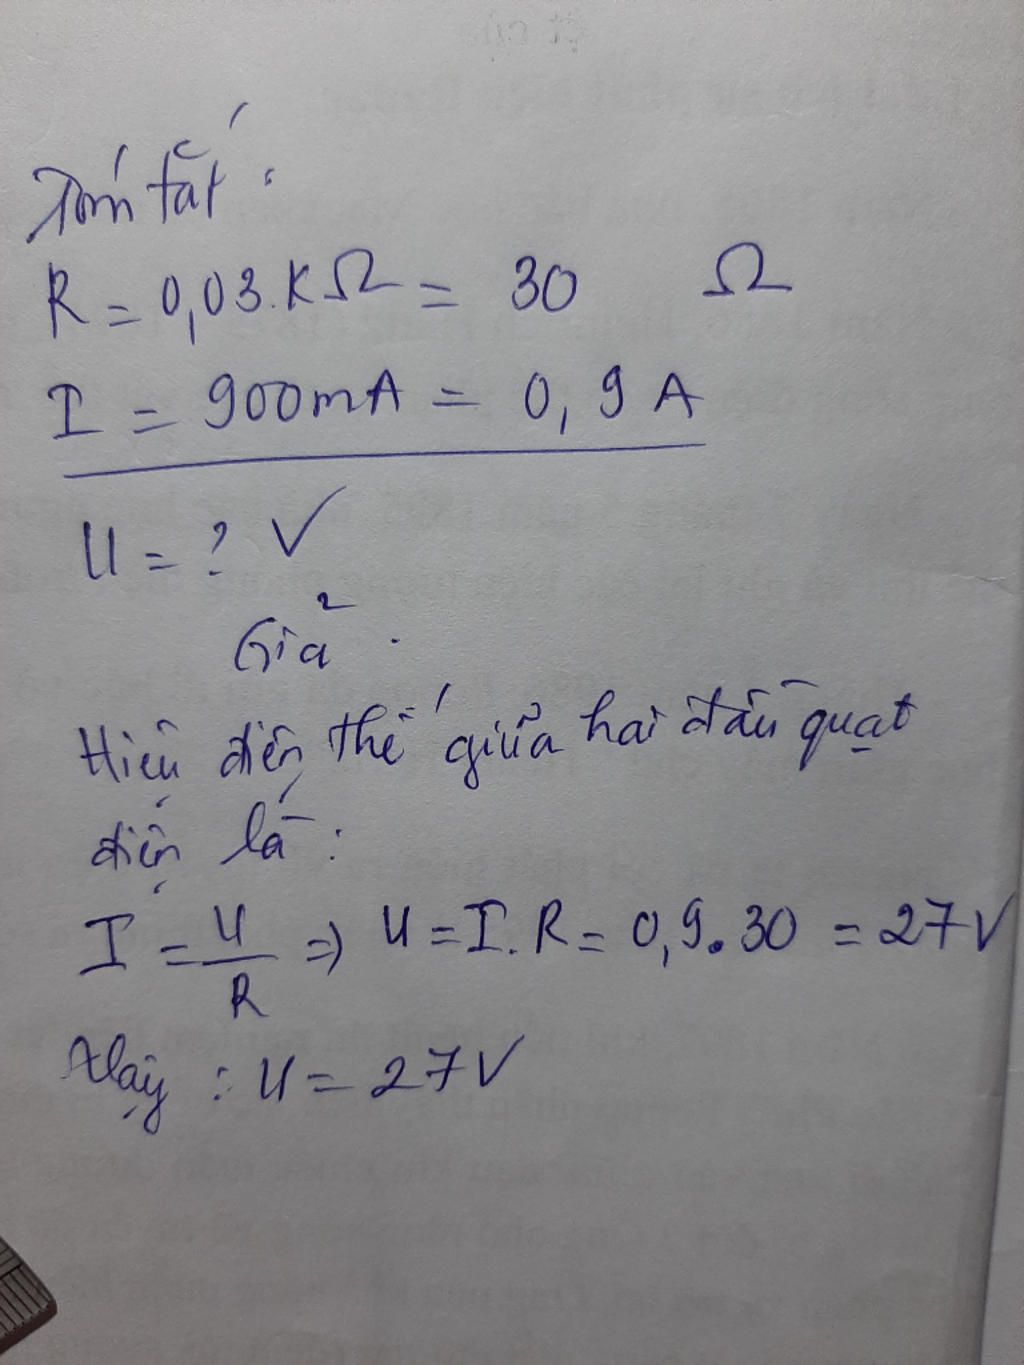 Tóm tắt :
R = 0,03.KΩ = 30 Ω
I = 900mA = 0,9 A
U = ? V
Giả :
Hiệu điện thế giữa hai đầu quạt
điện là :
I = U/R => U = I.R = 0,9.30 = 27V
Vậy : U = 27V